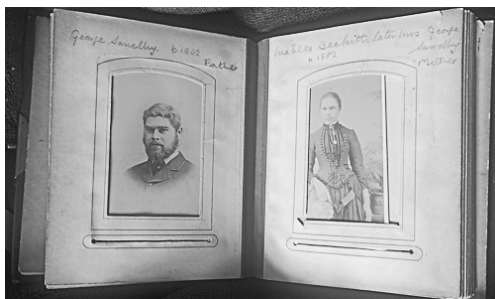 George Sandby. b 1862
Father
Matilda Beckett later Mrs George
Sandby
b 1862
Mother